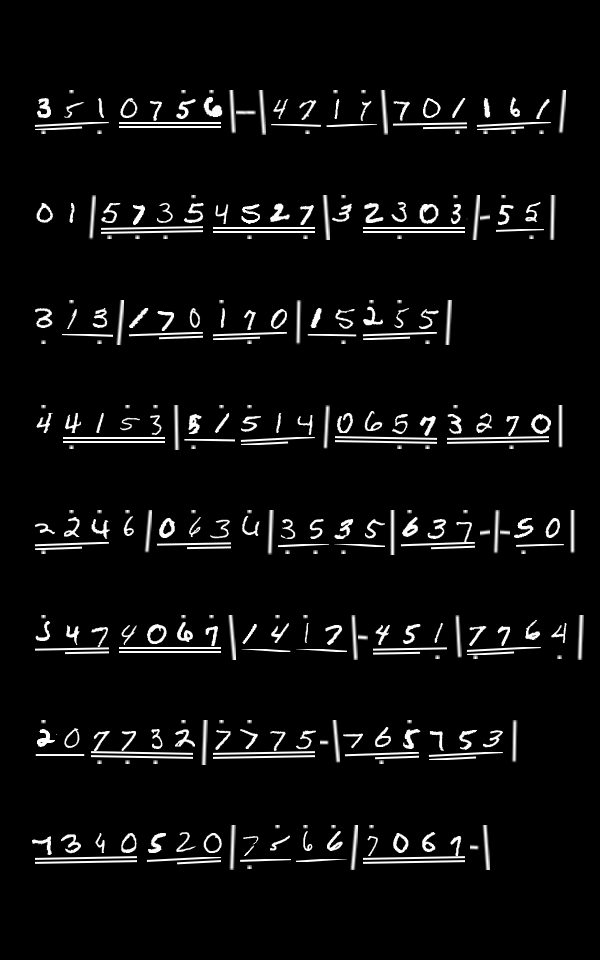 3 5 1 0 7 5 6 | - | 4 7 1 7 | 7 0 1 1 6 1 |
0 1 | 5 7 3 5 4 5 2 7 | 3 2 3 0 3 | - 5 5 |
3 1 3 | 1 7 0 1 7 0 | 1 5 2 5 5 |
4 4 1 5 3 | 5 1 5 1 4 | 0 6 5 7 3 2 7 0 |
2 2 4 6 | 0 6 3 4 | 3 5 3 5 | 6 3 7 - | - 5 0 |
3 4 7 4 0 6 7 | 1 4 1 7 | - 4 5 1 | 7 7 6 4 |
2 0 7 7 3 2 | 7 7 7 5 - | 7 6 5 7 5 3 |
7 3 4 0 5 2 0 | 7 5 6 6 | 7 0 6 7 - |